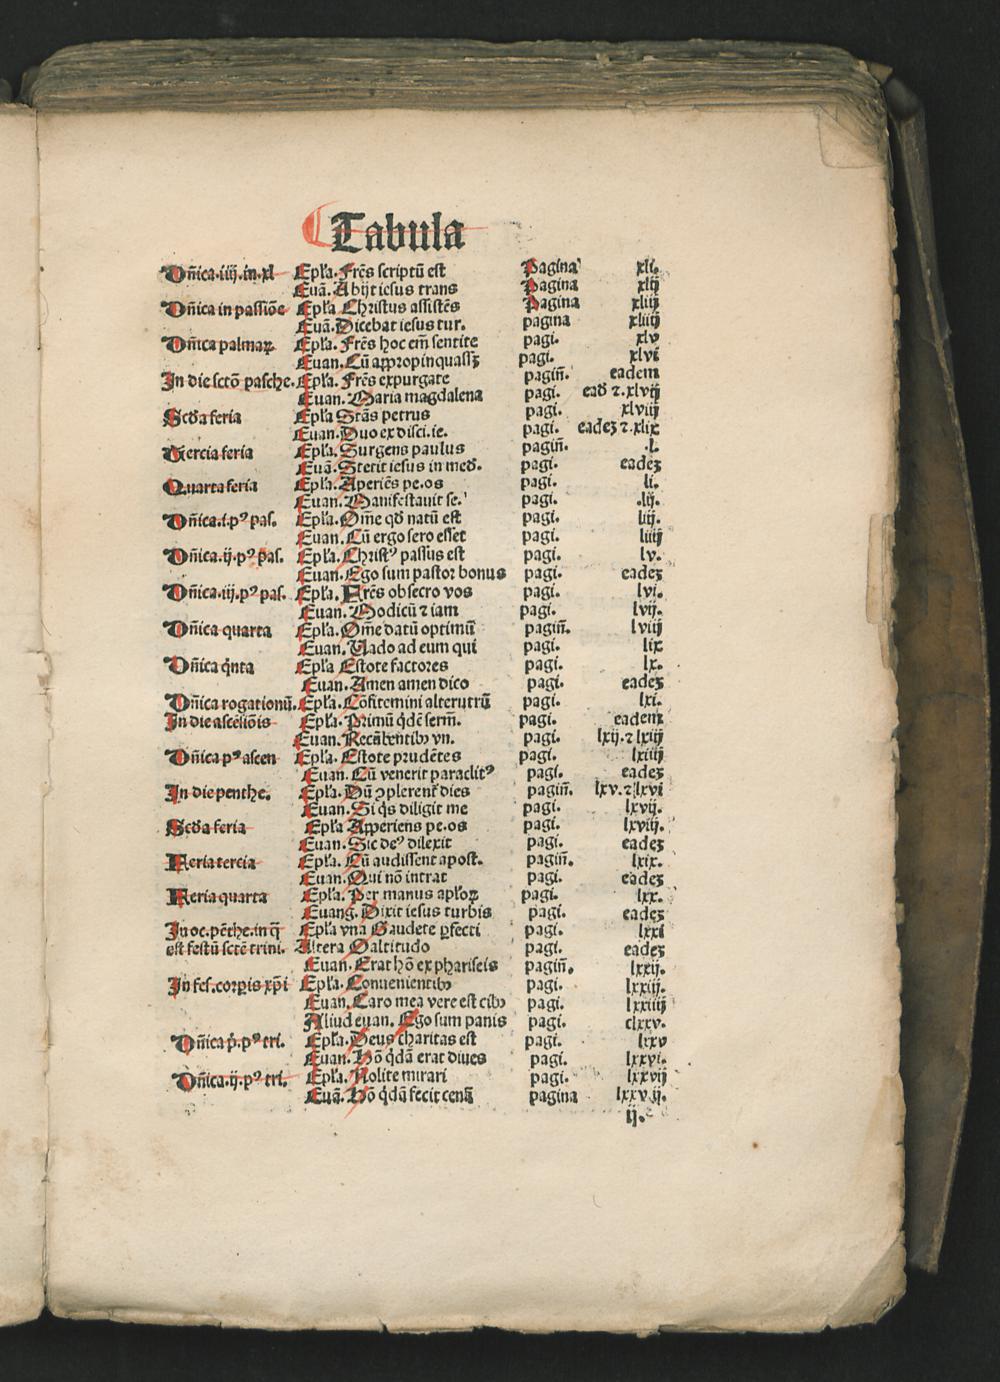 Tabula
Dñica.iiij.in.xl Epła.Frẽs scriptũ est Pagina xli.
Euã.Abijt iesus trans Pagina xlij
Dñica in passiõe Epła Christus assistẽs Pagina xliij
Euã.Dicebat iesus tur. pagina xliiij
Dñica palmaꝝ Epła.Frẽs hoc em̃ sentite pagi. xlv
Euan.Cũ appropinquassꝫ pagi. xlvi
In die sctõ pasche.Epła.Frẽs expurgate pagiñ. eadem
Euan.Maria magdalena pagi. eađ ⁊.xlvij
Scđa feria Epła Stãs petrus pagi. xlviij
Euan.Duo ex disci.ie. pagi. eadeꝫ ⁊.xlix
Tercia feria Epła.Surgens paulus pagiñ. .l.
Euã.Stetit iesus in međ. pagi. eadeꝫ
Quarta feria Epła.Aperiẽs pe.os pagi. li.
Euan.Manifestauit se. pagi. .lij.
Dñica.i.pꝰ pas. Epła.Om̃e qđ natũ est pagi. liij.
Euan.Cũ ergo sero esset pagi. liiij
Dñica.ij.pꝰ pas. Epła.Christꝰ passus est pagi. lv.
Euan.Ego sum pastor bonus pagi. eadeꝫ
Dñica.iij.pꝰ pas. Epła.Frẽs obsecro vos pagi. lvi.
Euan.Modicũ ⁊ iam pagi. lvij.
Dñica quarta Epła.Om̃e datũ optimũ pagiñ. lviij
Euan.Vado ad eum qui pagi. lix
Dñica q̃nta Epła Estote factores pagi. lx.
Euan.Amen amen dico pagi. eadeꝫ
Dñica rogationũ.Epła.Cõfitemini alterutrũ pagi. lxi.
In die ascẽsiõis Epła.Primũ q̃dẽ serm̃. pagi. eadem
Euan.Recũbentibꝰ vn. pagi. lxij.⁊ lxiij
Dñica pꝰ ascen Epła.Estote prudẽtes pagi. lxiiij
Euan.Cũ venerit paraclitꝰ pagi. eadeꝫ
In die penthe. Epła.Dũ ꝯplerent᷑ dies pagiñ. lxv.⁊ lxvi
Euan.Si q̃s diligit me pagi. lxvij.
Scđa feria Epła Apperiens pe.os pagi. lxviij.
Euan.Sic deꝰ dilexit pagi. eadeꝫ
Feria tercia Epła.Cũ audissent apost. pagiñ. lxix.
Euan.Qui nõ intrat pagi. eadeꝫ
Feria quarta Epła.Per manus apłoꝝ pagi. lxx.
Euang.Dixit iesus turbis pagi. eadeꝫ
In oc.pẽthe.in q̃ Epła vna Gaudete ꝑfecti pagi. lxxi
est festũ sctẽ trini. Altera O altitudo pagi. eadeꝫ
Euan.Erat hõ ex phariseis pagiñ. lxxij.
In fes.corꝑis xp̃i Epła.Conuenientibꝰ pagi. lxxiij.
Euan.Caro mea vere est cibꝰ pagi. lxxiiij
Aliud euan.Ego sum panis pagi. clxxv.
Dñica p̃.pꝰ tri. Epła.Deus charitas est pagi. lxxv
Euan.Hõ q̃dã erat diues pagi. lxxvi.
Dñica.ij.pꝰ tri. Epła.Nolite mirari pagi. lxxvij
Euã.Hõ q̃dã fecit cenã pagina lxxv ij.
ij.